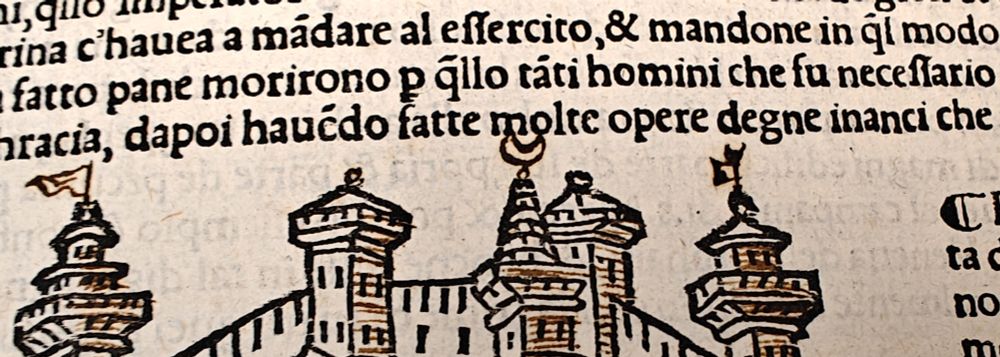 qllo
rina c'hauea a mādare al eſſercito, & mandone in q̄l modo
fatto pane morirono ꝑ q̄llo tāti homini che fu neceſſario
hracia, dapoi hauēdo fatte molte opere degne inanci che
ta
no